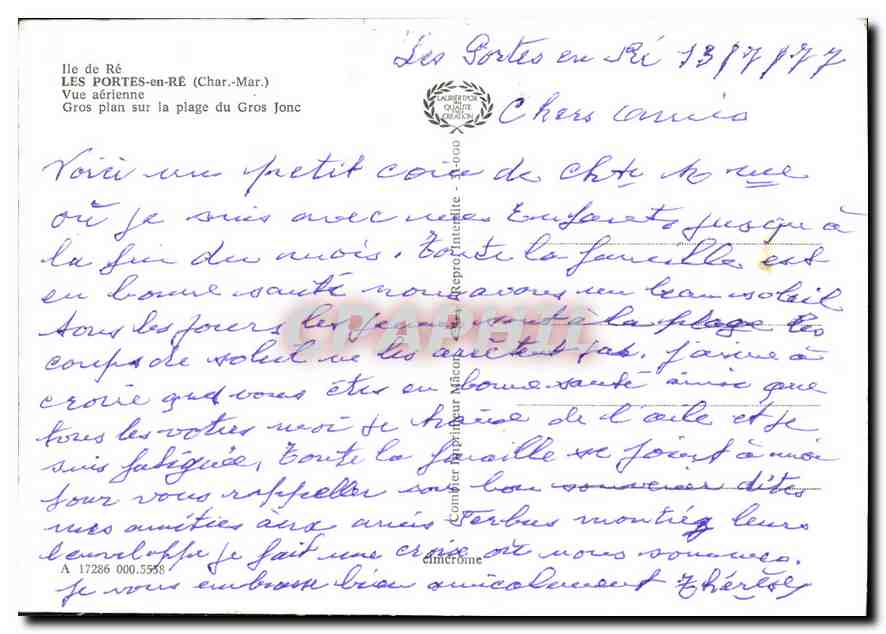 Les Portes en Ré 13/7/77
Ile de Ré
LES PORTES-en-RÉ (Char.-Mar.)
Vue aérienne
Gros plan sur la plage du Gros Jonc
LAURIER D'OR
DE
QUALITÉ
CRÉATION
Chers amis
Voici un petit coin de Chte Mme
où je suis avec mes Enfants jusqu'à
la fin du mois. Toute la famille est
en bonne santé nous avons un beau soleil
tous les jours les jeunes sont à la plage les
coups de soleil ne les arrêtent pas. j'aime à
croire que vous êtes en bonne santé ainsi que
tous les votres moi je traine de l'aile et je
suis fatiguée, Toute la famille se joint à moi
pour vous rappeller bon souvenir dites
mes amitiés aux amis Ferbus montréz leurs
l'enveloppe je fait une croix où nous sommes.
je vous embrasse bien amicalement Thérèse
Combier Imprimeur Mâcon Repro. Interdite
CPAPHIL
A 17286 000.5558
cimcrome